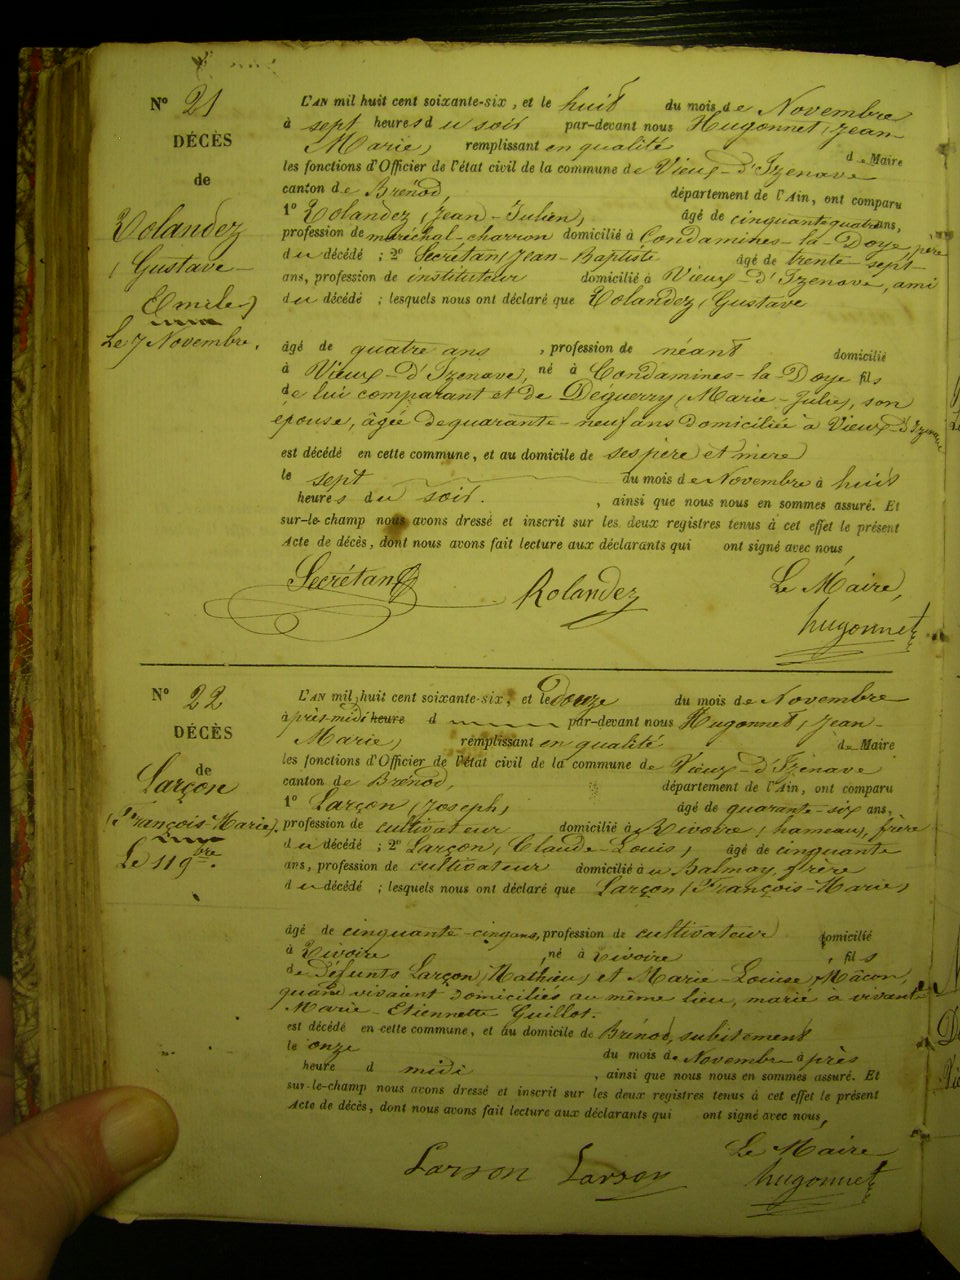 N° 21
DÉCÈS
de
Rolandez
(Gustave-
Emile)
Le 7 Novembre.
L'AN mil huit cent soixante-six, et le huit du mois de Novembre
à sept heures du soir par-devant nous Hugonnet, Jean-
Marie, remplissant en qualité de Maire
les fonctions d'Officier de l'état civil de la commune de Vieux-d'Izenave
canton de Brénod, département de l'Ain, ont comparu
1° Rolandez (Jean-Julien, âgé de cinquante quatre ans,
profession de maréchal-charron domicilié à Condamines-la-Doye, père
du décédé ; 2° Secrétan, Jean-Baptiste âgé de trente-sept
ans, profession de instituteur domicilié à Vieux-d'Izenave, ami
du décédé ; lesquels nous ont déclaré que Rolandez, Gustave
âgé de quatre ans , profession de néant domicilié
à Vieux-d'Izenave, né à Condamines-la-Doye fils
de lui comparant et de Déguerry (Marie-Julie), son
épouse, âgée de quarante-neuf ans domiciliée à Vieux-d'Izenave
est décédé en cette commune, et au domicile de ses père et mère
le sept du mois de Novembre à huit
heures du soir. , ainsi que nous nous en sommes assuré. Et
sur-le-champ nous avons dressé et inscrit sur les deux registres tenus à cet effet le présent
Acte de décès, dont nous avons fait lecture aux déclarants qui ont signé avec nous,
Secrétan Rolandez Le Maire,
hugonnet
N° 22
DÉCÈS
de
Larçon
(François-Marie).
Le 11 9bre.
L'AN mil huit cent soixante-six, et le douze du mois de Novembre
après-midi heure d par-devant nous Hugonnet, Jean-
Marie, remplissant en qualité de Maire
les fonctions d'Officier de l'état civil de la commune de Vieux-d'Izenave
canton de Brénod, département de l'Ain, ont comparu
1° Larçon (Joseph, âgé de quarante-six ans,
profession de cultivateur domicilié à Rivoire, hameau, frère
du décédé ; 2° Larçon, Claude-Louis, âgé de cinquante
ans, profession de cultivateur domicilié au Balmay, frère
du décédé ; lesquels nous ont déclaré que Larçon (François-Marie)
âgé de cinquante-cinq ans, profession de cultivateur domicilié
à Rivoire , né à Rivoire , fils
de défunts Larçon, Mathieu, et Marie-Louise Mâcon,
quand vivaient domiciliés au même lieu, marié à vivante
Marie-Etiennette Guillot.
est décédé en cette commune, et au domicile de Brénod, subitement
le onze du mois de Novembre après
heure d midi , ainsi que nous nous en sommes assuré. Et
sur-le-champ nous avons dressé et inscrit sur les deux registres tenus à cet effet le présent
Acte de décès, dont nous avons fait lecture aux déclarants qui ont signé avec nous,
Larson Larson Le Maire
hugonnet